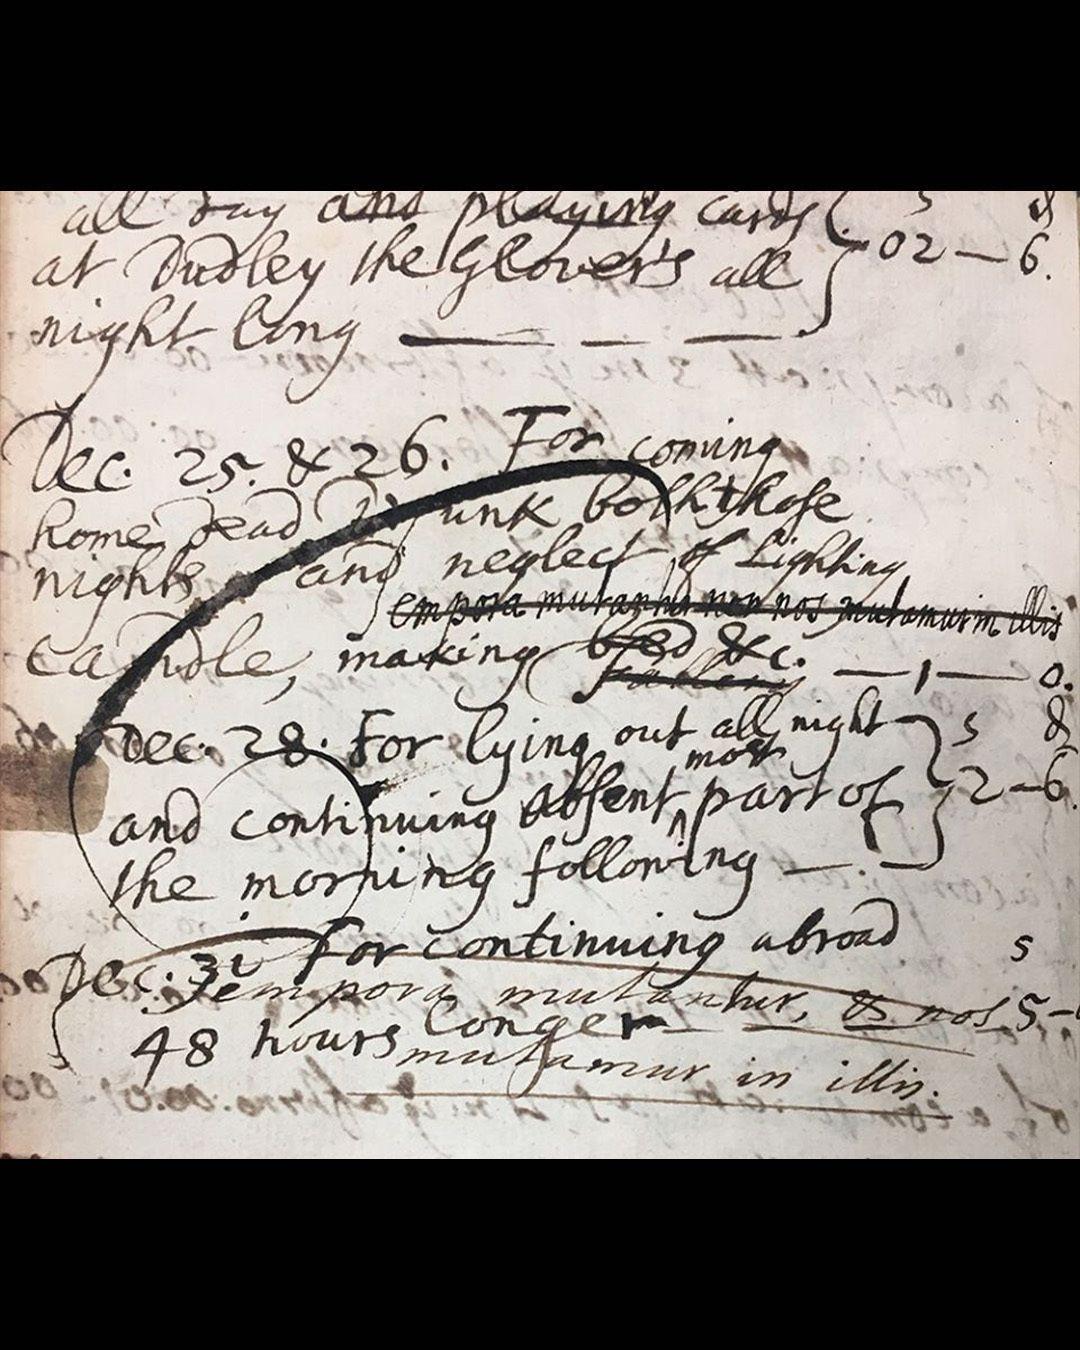 all day and playing cards } s d
at Dudley the Glover's all } 02 — 6.
night long — — —
Dec. 25. & 26. For coming
home dead Drunk both those
nights and neglect of Lighting
empora mutantur non nos mutamur in illis
candle, making bed &c. — 1 — 0.
Dec. 28. For lying out all night } s d
most
and continuing absent ^ part of } 2 — 6.
the morning following — .
Dec. 31 For continuing abroad s
Tempora mutantur, & nos 5 —
48 hours longer —
mutamur in illis.